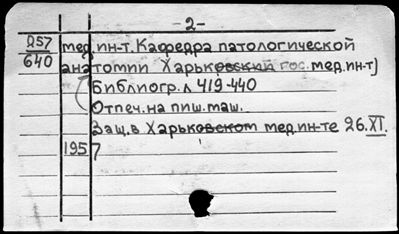 -2-
Д57 мед.ин-т. Кафедра патологической
640 анатомии Харьковский гос. мед.ин-т)
Библиогр. л 419-440
Отпеч. на пиш. маш.
Защ. в Харьковском мединс-те 26.XI.
1957